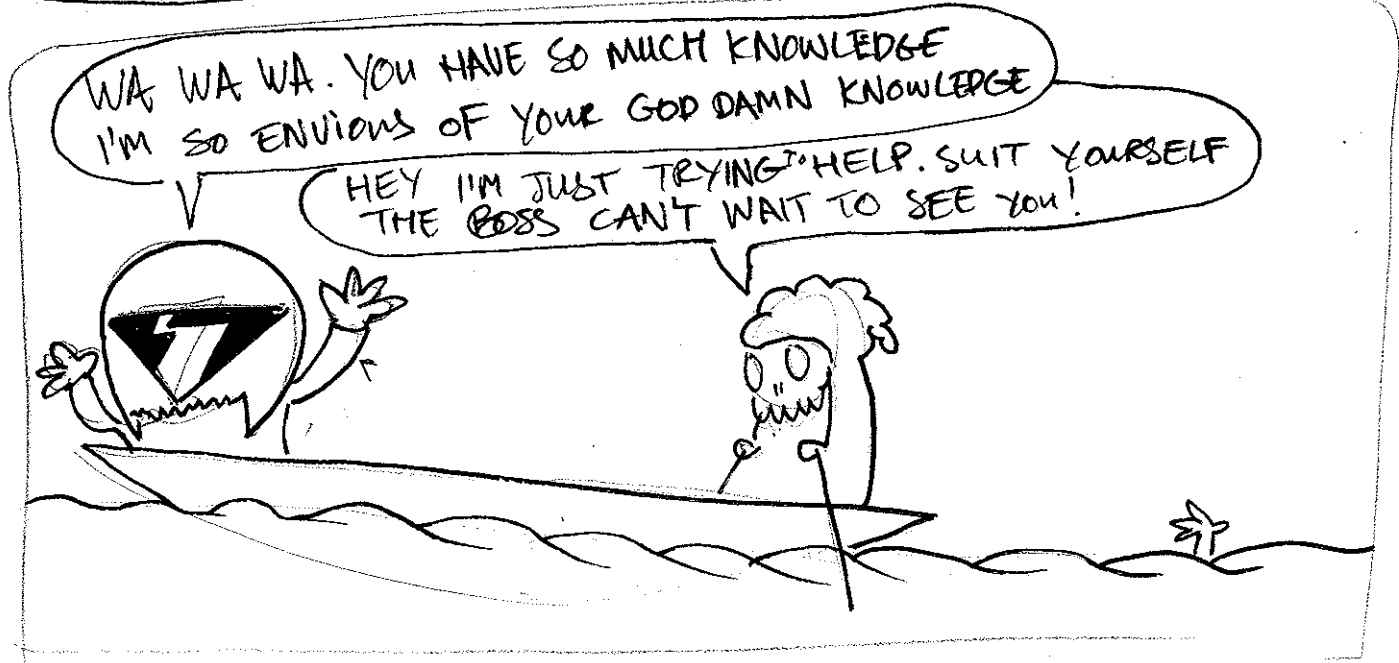 WA WA WA. YOU HAVE SO MUCH KNOWLEDGE
I'M SO ENVIOUS OF YOUR GOD DAMN KNOWLEDGE
HEY I'M JUST TRYING TO HELP. SUIT YOURSELF
THE BOSS CAN'T WAIT TO SEE YOU!